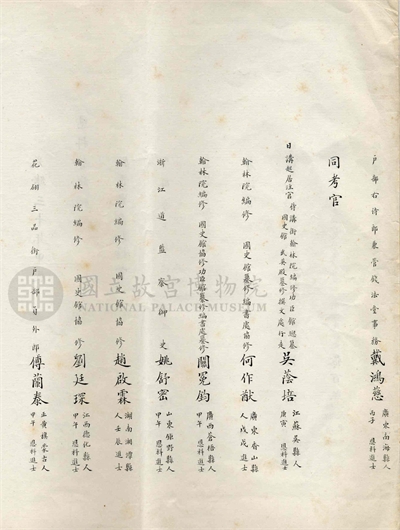 戶部右侍郎兼管錢法堂事務 戴鴻慈 廣東南海縣人 丙子 恩科進士
同考官
日講起居注官 侍講銜翰林院編修功臣館總纂 國史館 武英殿纂修撰文處行走 吳蔭培 江蘇吳縣人 庚寅 恩科進士
翰林院編修 國史館纂修編書處協修 何作猷 廣東香山縣人戊戌進士
翰林院編修 國史館協修功臣館纂修編書處纂修 關冕鈞 廣西蒼梧縣人 甲午 恩科進士
浙江道監察御史 姚舒密 山東鉅野縣人 甲午 恩科進士
翰林院編修 國史館協修 趙啟霖 湖南湘潭縣人壬辰進士
翰林院編修 國史館協修 劉廷琛 江西德化縣人 甲午 恩科進士
花翎三品銜戶部員外郎 傅蘭泰 正黃旗蒙古人 甲午 恩科進士
國立故宮博物院
NATIONAL PALACE MUSEUM